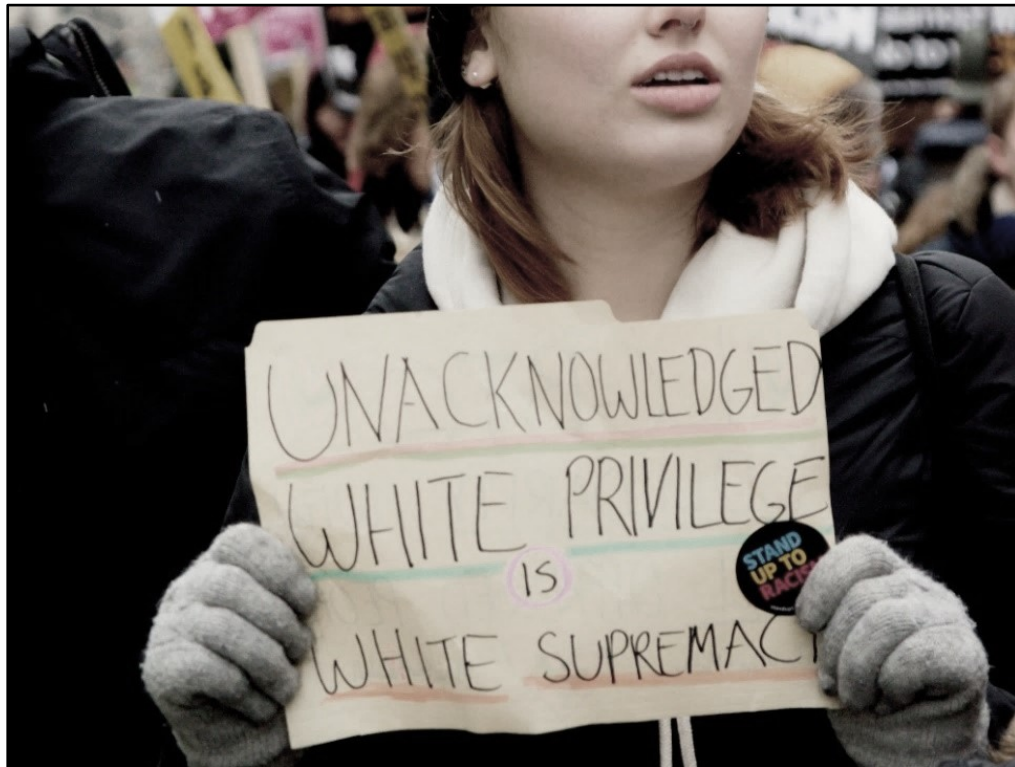 UNACKNOWLEDGED
WHITE PRIVILEGE
IS
WHITE SUPREMACY
STAND
UP TO
RACISM